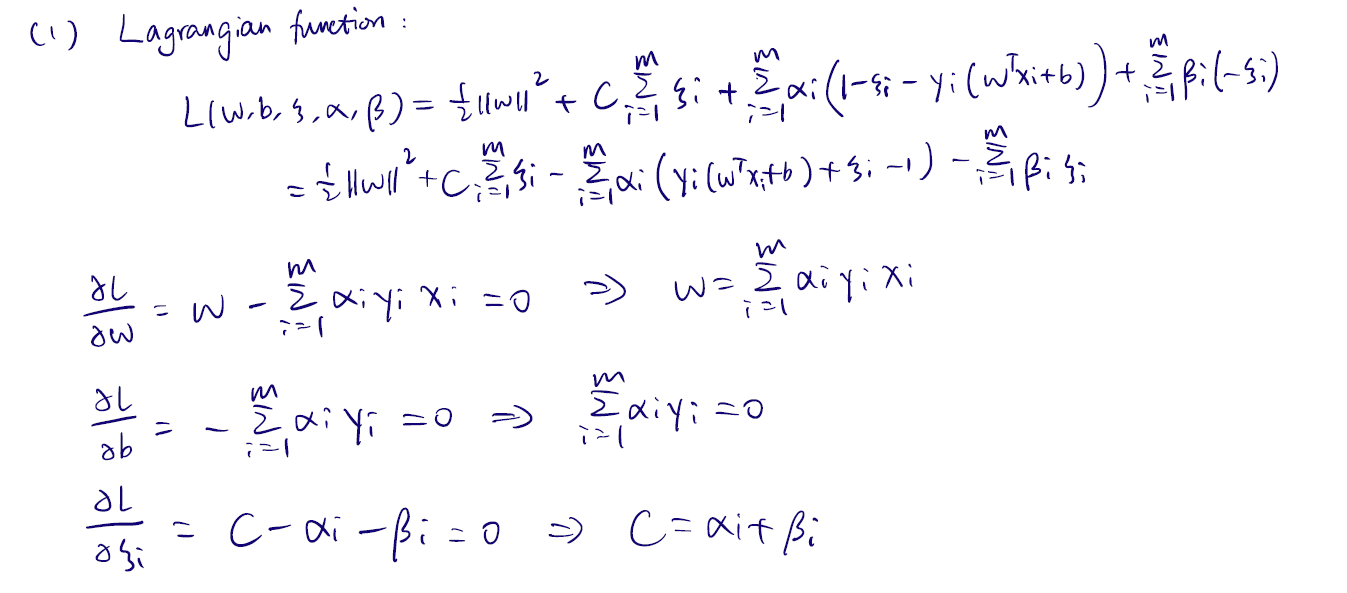 (1) Lagrangian function :
L(w,b,ξ,α,β) = ½||w||² + C∑ᵢ₌₁ᵐ ξᵢ + ∑ᵢ₌₁ᵐ αᵢ(1-ξᵢ - yᵢ(wᵀxᵢ+b)) + ∑ᵢ₌₁ᵐ βᵢ(-ξᵢ)
= ½||w||² + C∑ᵢ₌₁ᵐ ξᵢ - ∑ᵢ₌₁ᵐ αᵢ(yᵢ(wᵀxᵢ+b)+ξᵢ-1) - ∑ᵢ₌₁ᵐ βᵢξᵢ
∂L/∂w = w - ∑ᵢ₌₁ᵐ αᵢyᵢxᵢ = 0 ⇒ w = ∑ᵢ₌₁ᵐ αᵢyᵢxᵢ
∂L/∂b = - ∑ᵢ₌₁ᵐ αᵢyᵢ = 0 ⇒ ∑ᵢ₌₁ᵐ αᵢyᵢ = 0
∂L/∂ξᵢ = C - αᵢ - βᵢ = 0 ⇒ C = αᵢ + βᵢ